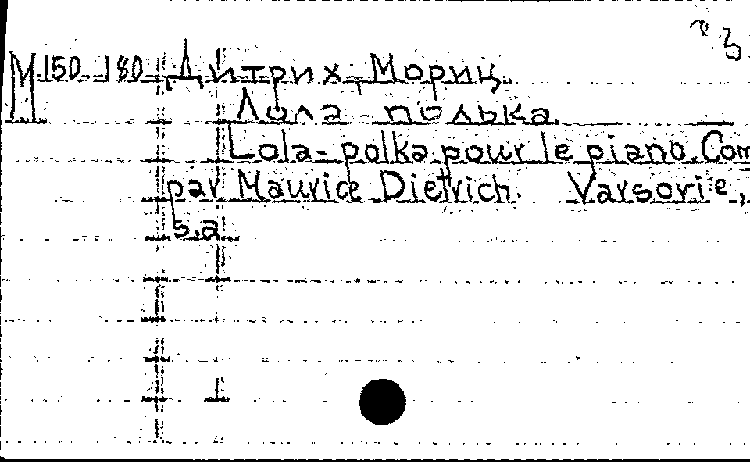 М 150 180 Дитрих, Мориц.
Лола - полька.
Lola-polka pour le piano. Com
par Maurice Dietrich. Varsovie,
s.a